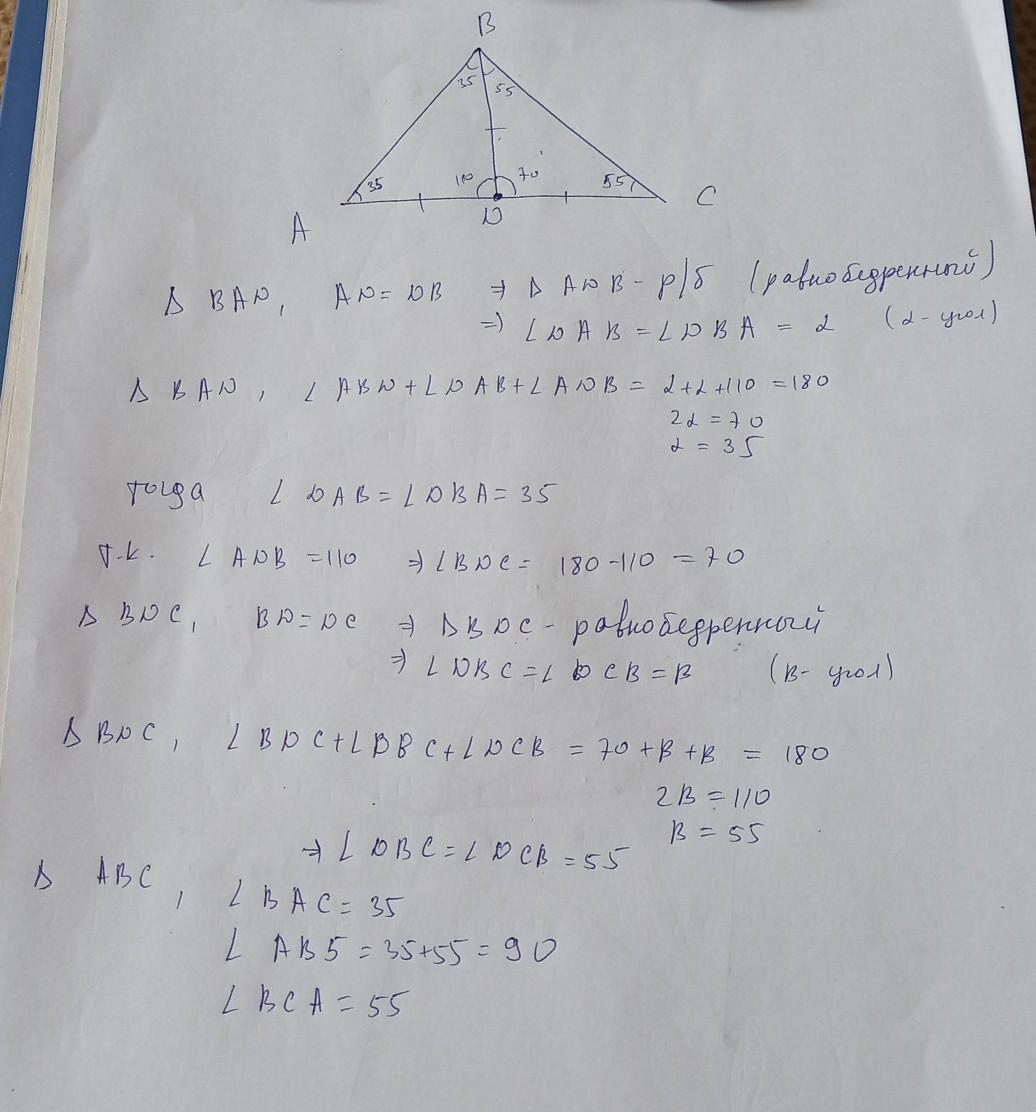 B
35 55
35 110 70 55
A D C
Δ BAD, AD = DB ⇒ Δ ADB - р/б (равнобедренный)
⇒ ∠DAB = ∠DBA = α (α - угол)
Δ BAD, ∠ABD + ∠DAB + ∠ADB = α + α + 110 = 180
2α = 70
α = 35
Тогда ∠DAB = ∠DBA = 35
Т.к. ∠ADB = 110 ⇒ ∠BDC = 180 - 110 = 70
Δ BDC, BD = DC ⇒ Δ BDC - равнобедренный
⇒ ∠DBC = ∠DCB = B (B - угол)
Δ BDC, ∠BDC + ∠DBC + ∠DCB = 70 + B + B = 180
2B = 110
B = 55
⇒ ∠DBC = ∠DCB = 55
Δ ABC, ∠BAC = 35
∠AB5 = 35 + 55 = 90
∠BCA = 55